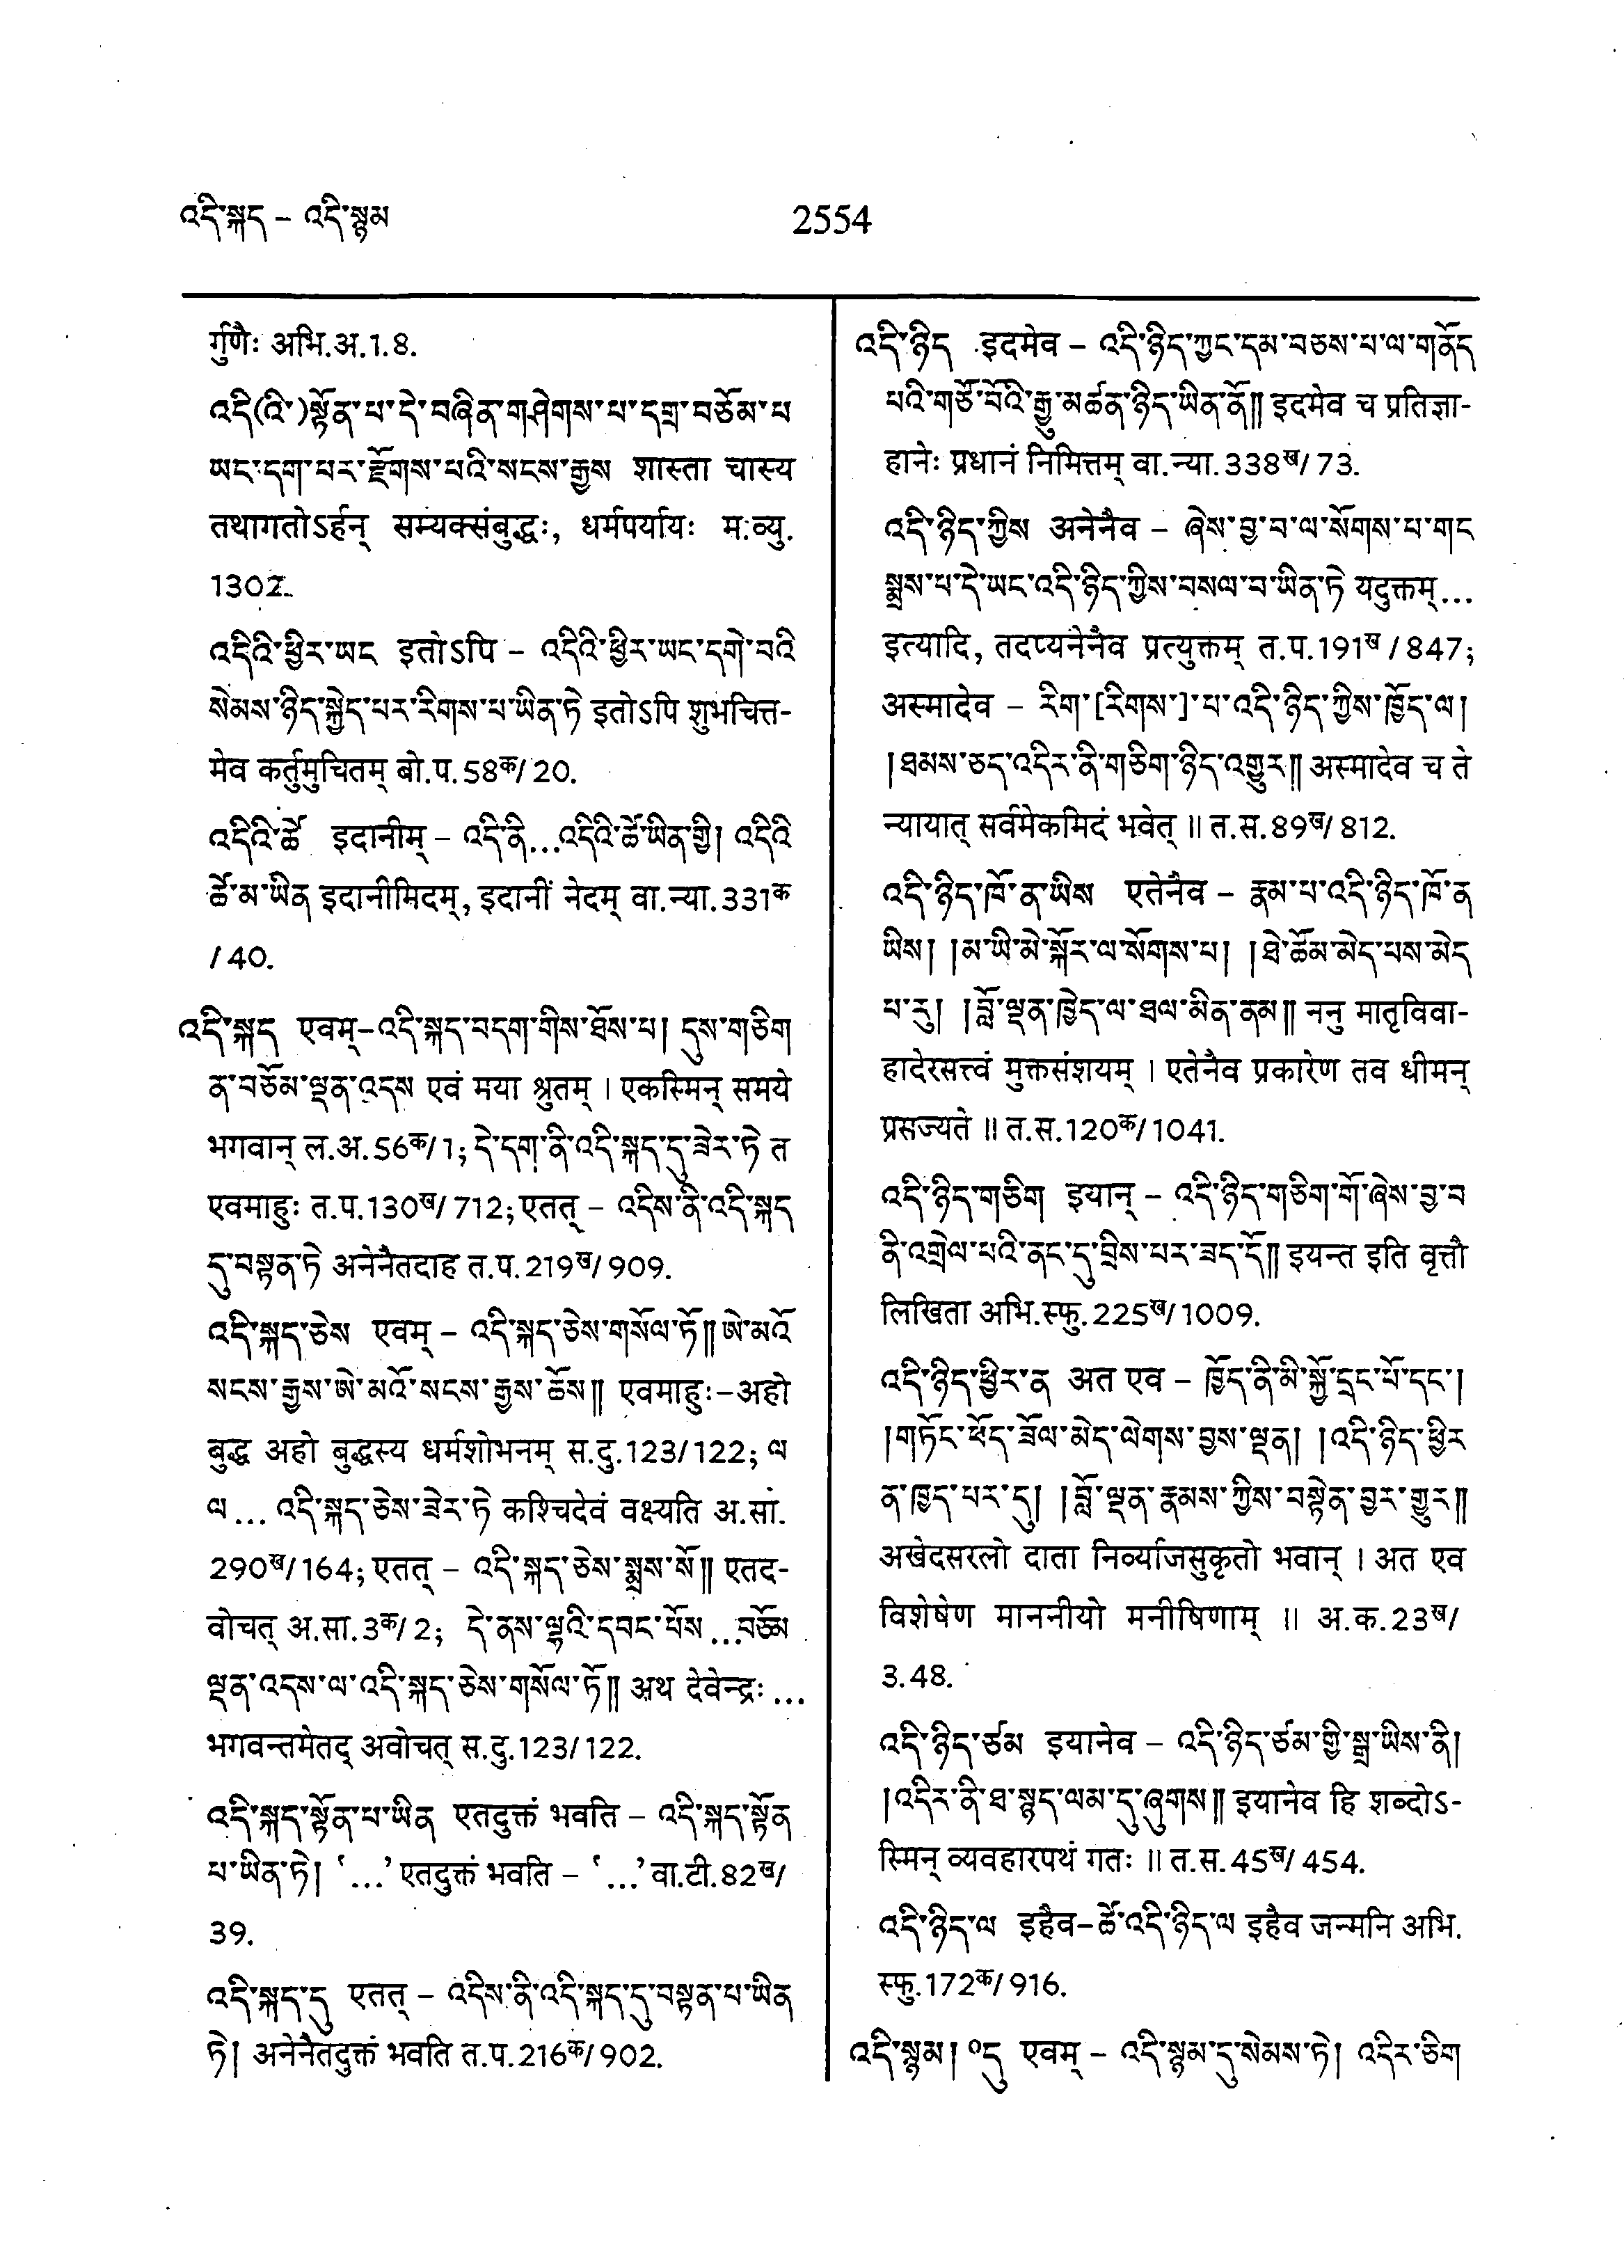 འདི་སྐད – འདི་སྙམ
2554
र्गुणैः अभि.अ.1.8.
འདི(འི་)སྟོན་པ་དེ་བཞིན་གཤེགས་པ་དགྲ་བཅོམ་པ
ཡང་དག་པར་རྫོགས་པའི་སངས་རྒྱས शास्ता चास्य
तथागतोऽर्हन् सम्यक्संबुद्धः, धर्मपर्यायः म.व्यु.
1302.
འདིའི་ཕྱིར་ཡང इतोऽपि – འདིའི་ཕྱིར་ཡང་དགེ་བའི
སེམས་ཉིད་སྐྱེད་པར་རིགས་པ་ཡིན་ཏེ इतोऽपि शुभचित्त-
मेव कर्तुमुचितम् बो.प.58क/20.
འདིའི་ཚེ इदानीम् – འདི་ནི...འདིའི་ཚེ་ཡིན་གྱི། འདིའི
ཚེ་མ་ཡིན इदानीमिदम्, इदानीं नेदम् वा.न्या.331क
/40.
འདི་སྐད एवम्–འདི་སྐད་བདག་གིས་ཐོས་པ། དུས་གཅིག
ན་བཅོམ་ལྡན་འདས एवं मया श्रुतम् । एकस्मिन् समये
भगवान् ल.अ.56क/1; དེ་དག་ནི་འདི་སྐད་དུ་ཟེར་ཏེ त
एवमाहुः त.प.130ख/712; एतत् – འདིས་ནི་འདི་སྐད
དུ་བསྟན་ཏེ अनेनैतदाह त.प.219ख/909.
འདི་སྐད་ཅེས एवम् – འདི་སྐད་ཅེས་གསོལ་ཏོ༎ ཨེ་མའོ
སངས་རྒྱས་ཨེ་མའོ་སངས་རྒྱས་ཆོས༎ एवमाहुः–अहो
बुद्ध अहो बुद्धस्य धर्मशोभनम् स.दु.123/122; ལ
ལ... འདི་སྐད་ཅེས་ཟེར་ཏེ कश्चिदेवं वक्ष्यति अ.सा.
290ख/164; एतत् – འདི་སྐད་ཅེས་སྨྲས་སོ༎ एतद-
वोचत् अ.सा.3क/2; དེ་ནས་ལྷའི་དབང་པོས ...བཅོམ
ལྡན་འདས་ལ་འདི་སྐད་ཅེས་གསོལ་ཏོ༎ अथ देवेन्द्रः...
भगवन्तमेतद् अवोचत् स.दु.123/122.
འདི་སྐད་སྟོན་པ་ཡིན एतदुक्तं भवति – འདི་སྐད་སྟོན
པ་ཡིན་ཏེ། ‘...’ एतदुक्तं भवति – ‘...’ वा.टी.82ख/
39.
འདི་སྐད་དུ एतत् – འདིས་ནི་འདི་སྐད་དུ་བསྟན་པ་ཡིན
ཏེ། अनेनैतदुक्तं भवति त.प.216क/902.
འདི་ཉིད इदमेव – འདི་ཉིད་ཀྱང་དམ་བཅས་པ་ལ་གནོད
པའི་གཙོ་བོའི་རྒྱུ་མཚན་ཉིད་ཡིན་ནོ༎ इदमेव च प्रतिज्ञा-
हानेः प्रधानं निमित्तम् वा.न्या.338ख/73.
འདི་ཉིད་ཀྱིས अनेनैव – ཞེས་བྱ་བ་ལ་སོགས་པ་གང
སྨྲས་པ་དེ་ཡང་འདི་ཉིད་ཀྱིས་བསལ་བ་ཡིན་ཏེ यदुक्तम्...
इत्यादि, तदप्यनेनैव प्रत्युक्तम् त.प.191ख/847;
अस्मादेव – རིག་[རིགས་]་པ་འདི་ཉིད་ཀྱིས་ཁྱོད་ལ།
།ཐམས་ཅད་འདིར་ནི་གཅིག་ཉིད་འགྱུར༎ अस्मादेव च ते
न्यायात् सर्वमेकमिदं भवेत् ॥ त.स.89ख/812.
འདི་ཉིད་ཁོ་ན་ཡིས एतेनैव – རྣམ་པ་འདི་ཉིད་ཁོ་ན
ཡིས། །མ་ཡི་མེ་སྐོར་ལ་སོགས་པ། །ཐེ་ཚོམ་མེད་པས་མེད
པ་རུ། །བློ་ལྡན་ཁྱེད་ལ་ཐལ་མིན་ནམ༎ ननु मातृविवा-
हादेरसत्त्वं मुक्तसंशयम् । एतेनैव प्रकारेण तव धीमन्
प्रसज्यते ॥ त.स.120क/1041.
འདི་ཉིད་གཅིག इयान् – འདི་ཉིད་གཅིག་གོ་ཞེས་བྱ་བ
ནི་འགྲེལ་པའི་ནང་དུ་བྲིས་པར་ཟད་དོ༎ इयन्त इति वृत्तौ
लिखिता अभि.स्फु.225ख/1009.
འདི་ཉིད་ཕྱིར་ན अत एव – ཁྱོད་ནི་མི་སྐྱོ་དྲང་པོ་དང་།
།གཏོང་ཕོད་ཟོལ་མེད་ལེགས་བྱས་ལྡན། །འདི་ཉིད་ཕྱིར
ན་ཁྱད་པར་དུ། །བློ་ལྡན་རྣམས་ཀྱིས་བསྟེན་བྱར་གྱུར༎
अखेदसरलो दाता निर्व्याजसुकृतो भवान् । अत एव
विशेषेण माननीयो मनीषिणाम् ॥ अ.क.23ख/
3.48.
འདི་ཉིད་ཙམ इयानेव – འདི་ཉིད་ཙམ་གྱི་སྒྲ་ཡིས་ནི།
།འདིར་ནི་ཐ་སྙད་ལམ་དུ་ཞུགས༎ इयानेव हि शब्दोऽ-
स्मिन् व्यवहारपथं गतः ॥ त.स.45ख/454.
འདི་ཉིད་ལ इहैव–ཚེ་འདི་ཉིད་ལ इहैव जन्मनि अभि.
स्फु.172क/916.
འདི་སྙམ། ॰དུ एवम् – འདི་སྙམ་དུ་སེམས་ཏེ། འདིར་ཅིག